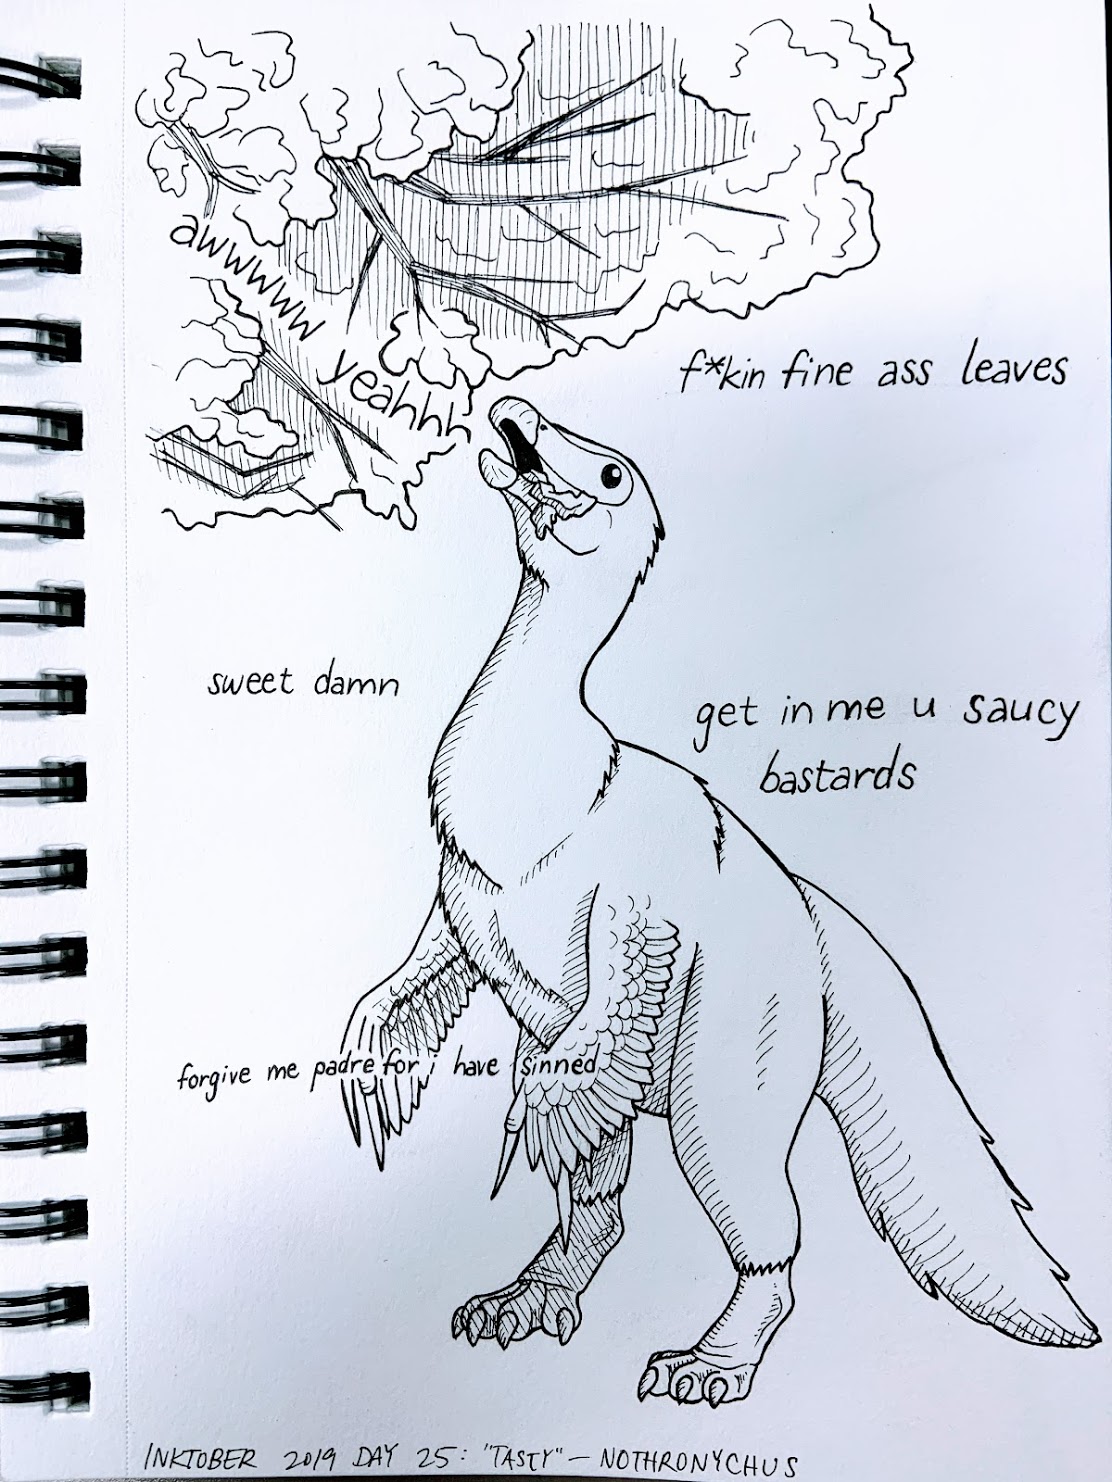 awwwww
yeahhh
f*kin fine ass leaves
sweet damn
get in me u saucy
bastards
forgive me padre for i have sinned
INKTOBER 2019 DAY 25: "TASTY" — NOTHRONYCHUS